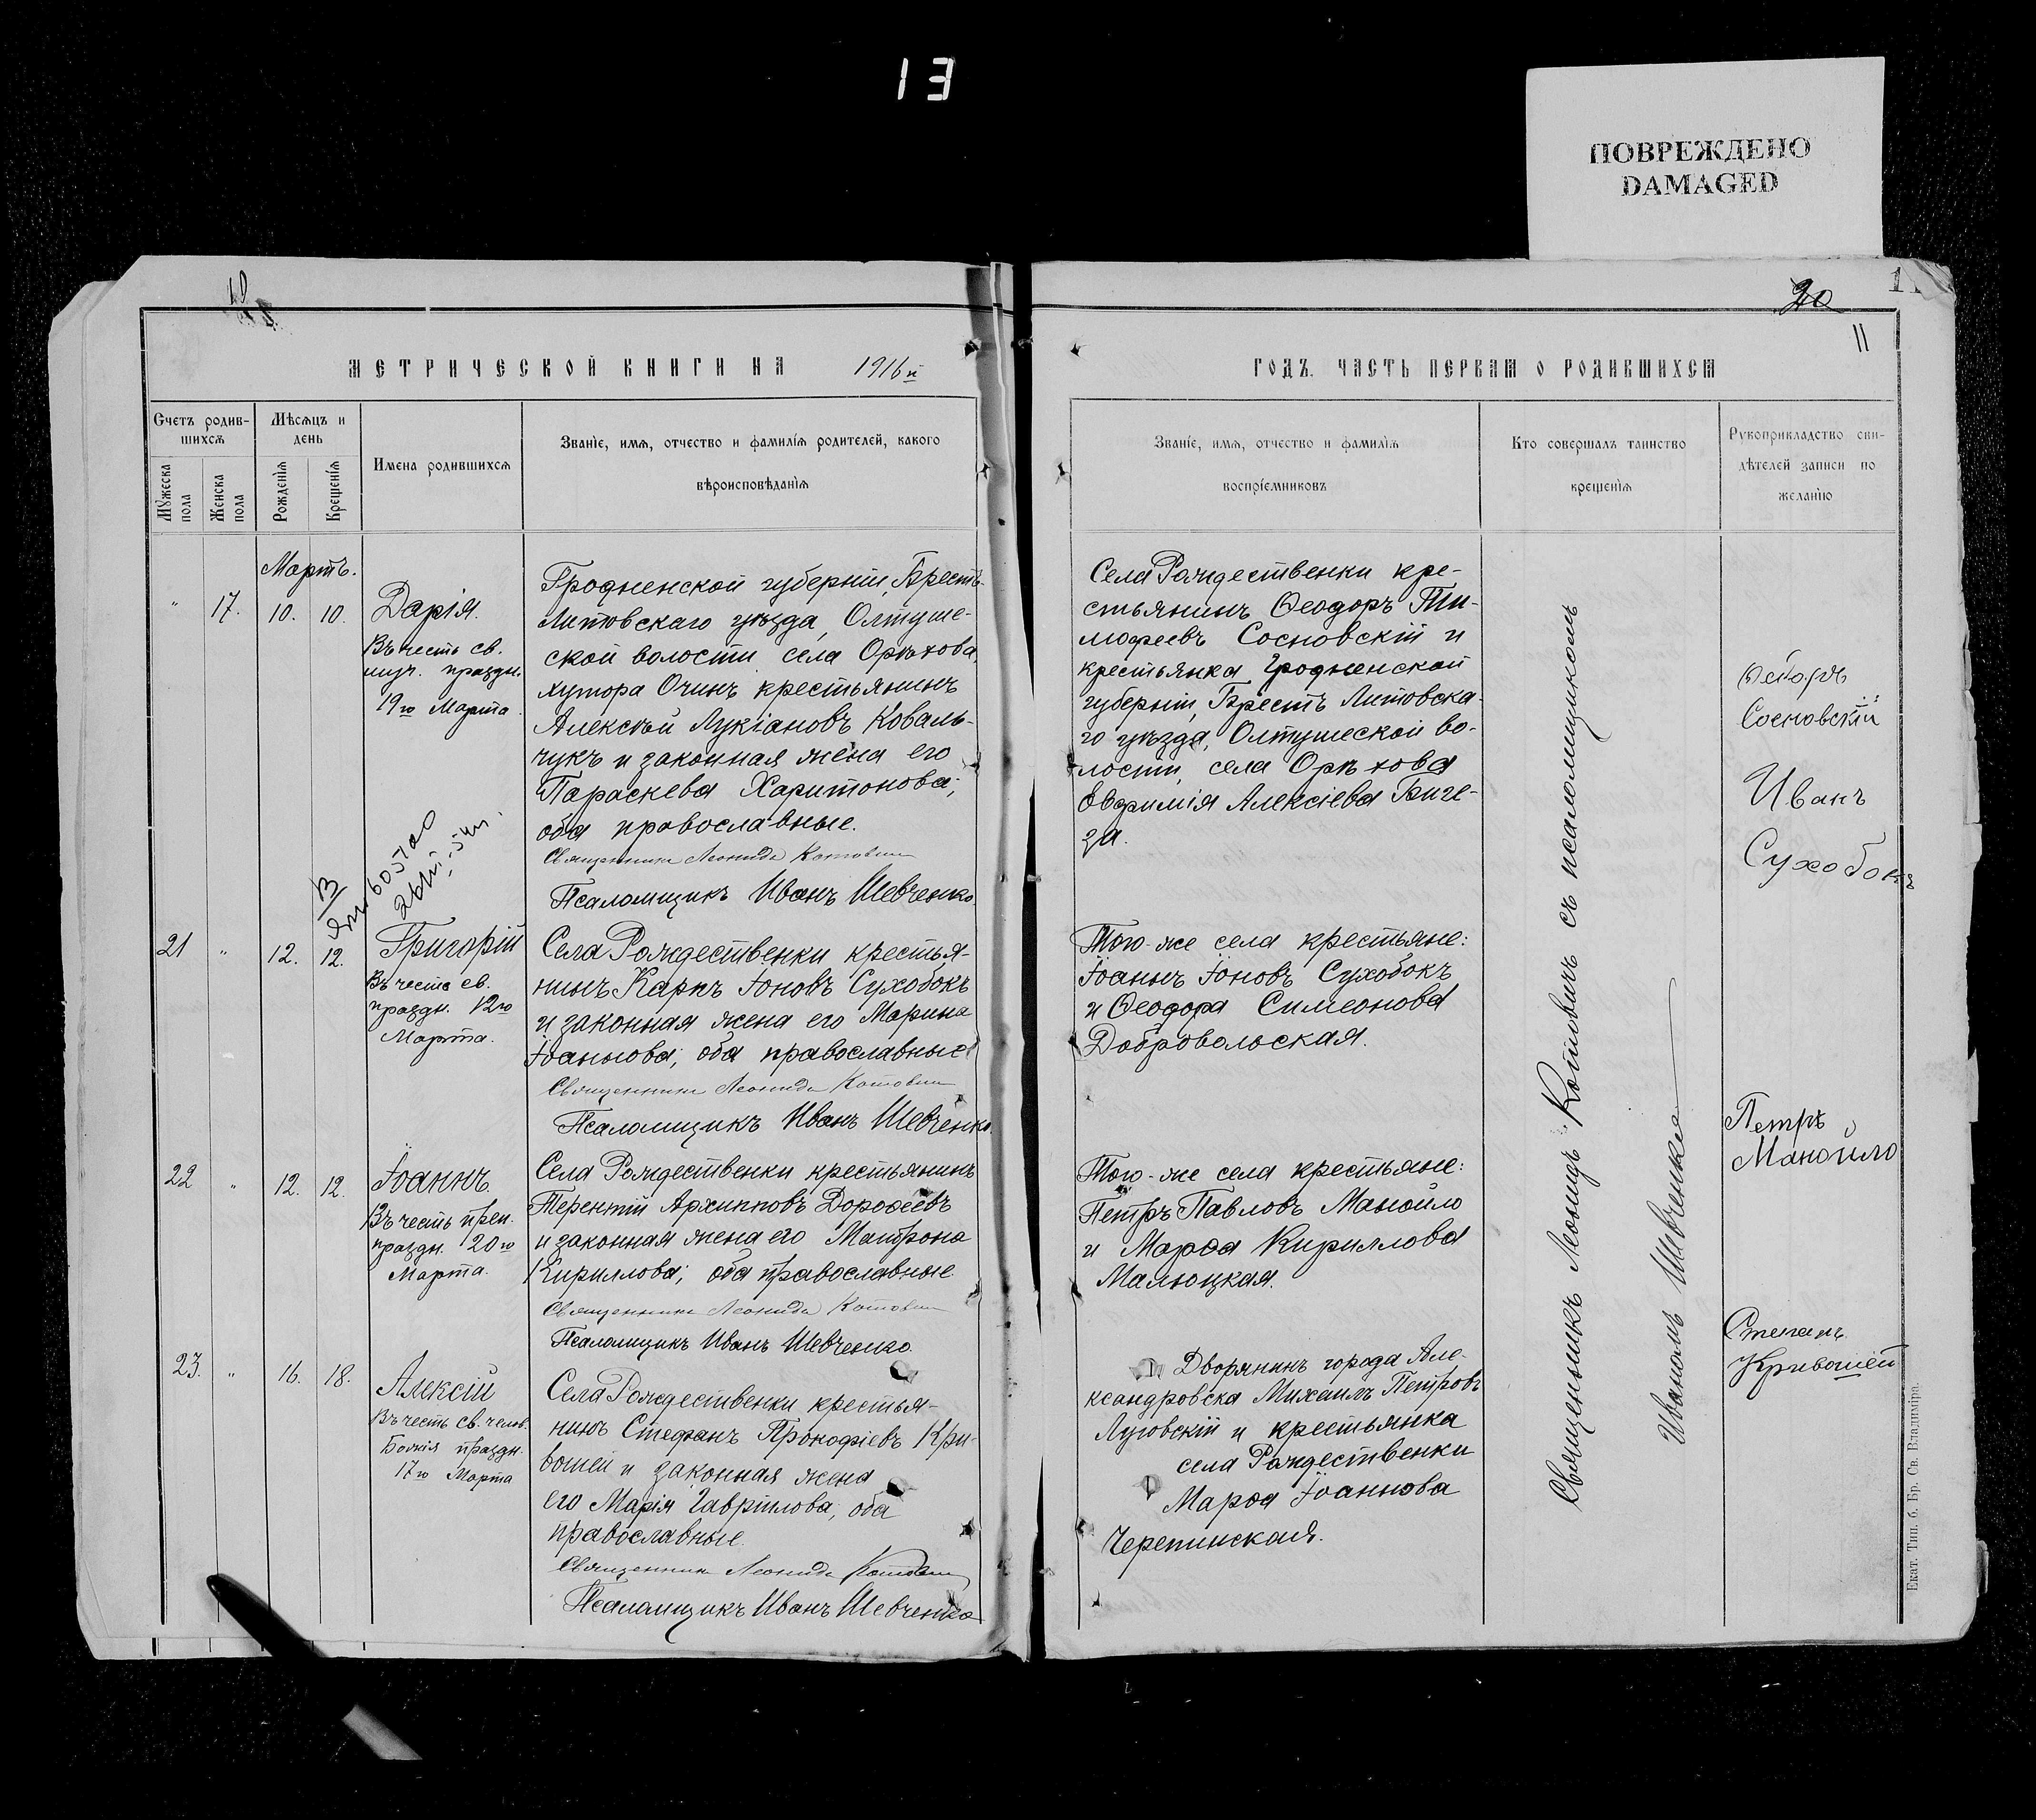 13
ПОВРЕЖДЕНО
DAMAGED
20
11
МЕТРИЧЕСКОЙ КНИГИ НА 1916й
Счетъ родив-
шихся
Мужеска пола
Женска пола
Мѣсяцъ и
день
Рожденія
Крещенія
Имена родившихся
Званіе, имя, отчество и фамилія родителей, какого
вѣроисповѣданія
Мартъ.
" 17. 10. 10.
Дарія.
Въ честь св.
муч. праздн.
19го Марта.
Гродненской губерніи, Брестъ-
Литовскаго уѣзда, Олтуше-
ской волости села Орѣхова,
хутора Очинъ крестьянинъ
Алексѣй Лукіановъ Коваль-
чукъ и законная жена его
Параскева Харитонова;
оба православные.
Священникъ Леонидъ Котовичъ
Псаломщикъ Иванъ Шевченко.
21 " 12. 12.
Григорій
Въ честь св.
праздн. 12го
Марта.
Села Рождественки крестья-
нинъ Карпъ Іоновъ Сухобокъ
и законная жена его Марина
Іоаннова; оба православные
Священникъ Леонидъ Котовичъ
Псаломщикъ Иванъ Шевченко.
22 " 12. 12.
Іоаннъ.
Въ честь преп.
праздн. 20го
Марта.
Села Рождественки крестьянинъ
Терентій Архипповъ Дорофеевъ
и законная жена его Матрона
Кириллова; оба православные
Священникъ Леонидъ Котовичъ
Псаломщикъ Иванъ Шевченко.
23. " 16. 18.
Алексій
Въ честь св. челов.
Божія праздн.
17го Марта
Села Рождественки крестья-
нинъ Стефанъ Прокофіевъ Кри-
вошей и законная жена
его Марія Гавріилова, оба
православные.
Священникъ Леонидъ Котовичъ
Псаломщикъ Иванъ Шевченко
ГОДЪ. ЧАСТЬ ПЕРВАЯ О РОДИВШИХСЯ
Званіе, имя, отчество и фамилія
воспріемниковъ
Кто совершалъ таинство
крещенія
Рукоприкладство сви-
дѣтелей записи по
желанію
Села Рождественки кре-
стьянинъ Ѳеодоръ Ти-
мофеевъ Сосновскій и
крестьянка Гродненской
губерніи, Брестъ Литовска-
го уѣзда, Олтушеской во-
лости, села Орѣхова
Евфимія Алексіева Биге-
за.
Того-же села крестьяне:
Іоаннъ Іоновъ Сухобокъ
и Ѳеодора Симеонова
Добровольская.
Того-же села крестьяне:
Петръ Павловъ Манойло
и Марѳа Кириллова
Малюцкая.
Дворянинъ города Але-
ксандровска Михаилъ Петровъ
Луговскій и крестьянка
села Рождественки
Марѳа Іоаннова
Черепинская.
Священникъ Леонидъ Котовичъ съ псаломщикомъ
Иваномъ Шевченко
Ѳеодоръ
Сосновскій
Иванъ
Сухобокъ
Петръ
Манойло
Степанъ
Кривошей
Екат. Тип. б. Бр. Св. Владиміра.